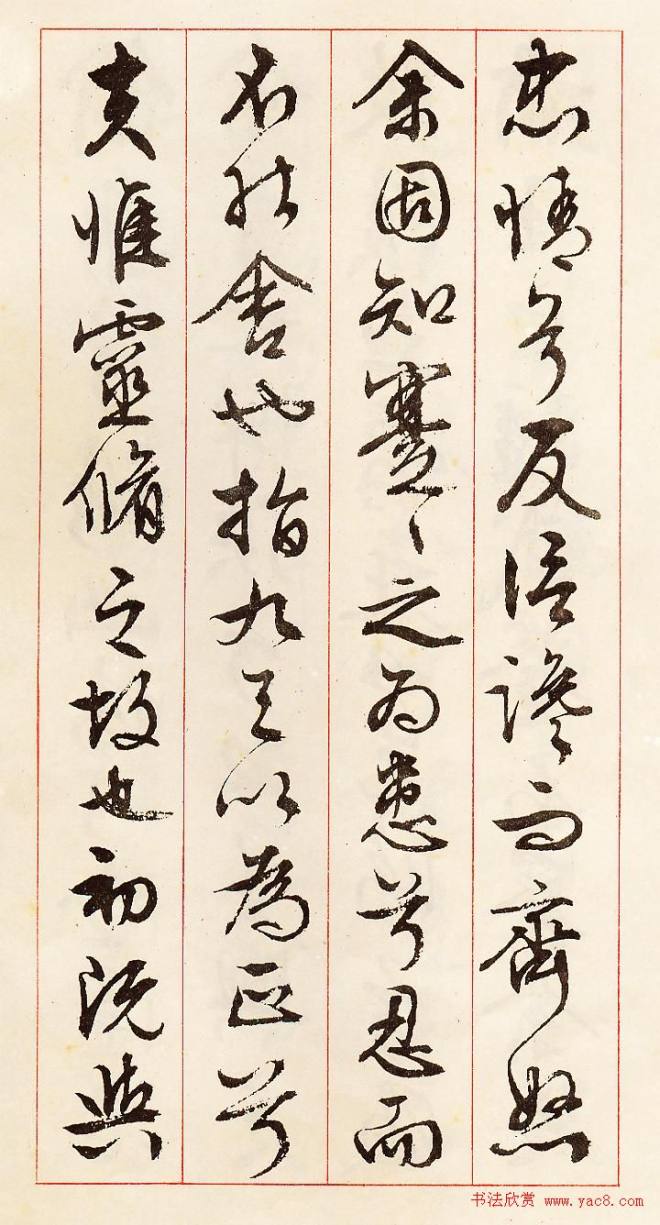 忠情兮反信讒而齊怒
余固知謇〻之為患兮忍而
不能舍也指九天以為正兮
夫惟靈脩之故也初既與
书法欣赏 www.yac8.com